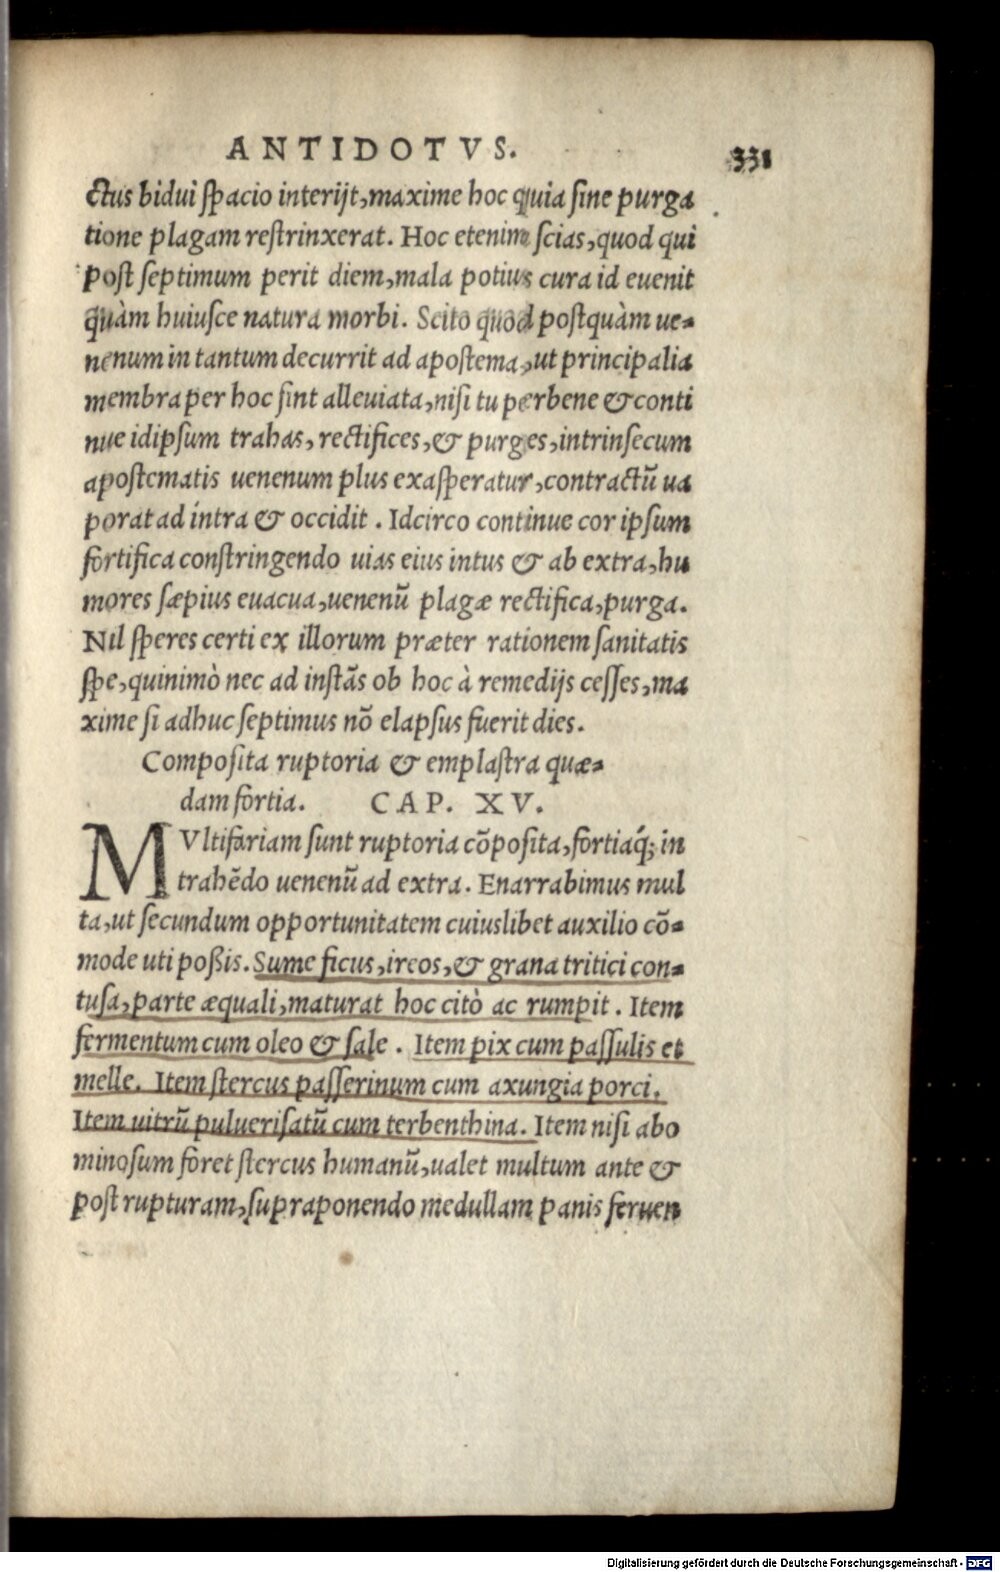 ANTIDOTVS. 331
ctus bidui spacio interijt, maxime hoc quia sine purga
tione plagam restrinxerat. Hoc etenim scias, quod qui
post septimum perit diem, mala potius cura id euenit
quàm huiusce natura morbi. Scito quod postquàm ue-
nenum in tantum decurrit ad apostema, ut principalia
membra per hoc sint alleuiata, nisi tu perbene & conti
nue idipsum trahas, rectifices, & purges, intrinsecum
apostematis uenenum plus exasperatur, contractũ ua
porat ad intra & occidit. Idcirco continue cor ipsum
fortifica constringendo uias eius intus & ab extra, hu
mores sæpius euacua, uenenũ plagæ rectifica, purga.
Nil speres certi ex illorum præter rationem sanitatis
spe, quinimò nec ad instãs ob hoc à remedijs cesses, ma
xime si adhuc septimus nõ elapsus fuerit dies.
Composita ruptoria & emplastra quæ-
dam fortia. CAP. XV.
MVltifariam sunt ruptoria cõposita, fortiaq́; in
trahẽdo uenenũ ad extra. Enarrabimus mul
ta, ut secundum opportunitatem cuiuslibet auxilio cõ-
mode uti poßis. Sume ficus, ireos, & grana tritici con-
tusa, parte æquali, maturat hoc citò ac rumpit. Item
fermentum cum oleo & sale. Item pix cum passulis et
melle. Item stercus passerinum cum axungia porci.
Item uitrũ puluerisatũ cum terbenthina. Item nisi abo
minosum foret stercus humanũ, ualet multum ante &
post rupturam, supraponendo medullam panis feruen
Digitalisierung gefördert durch die Deutsche Forschungsgemeinschaft - DFG